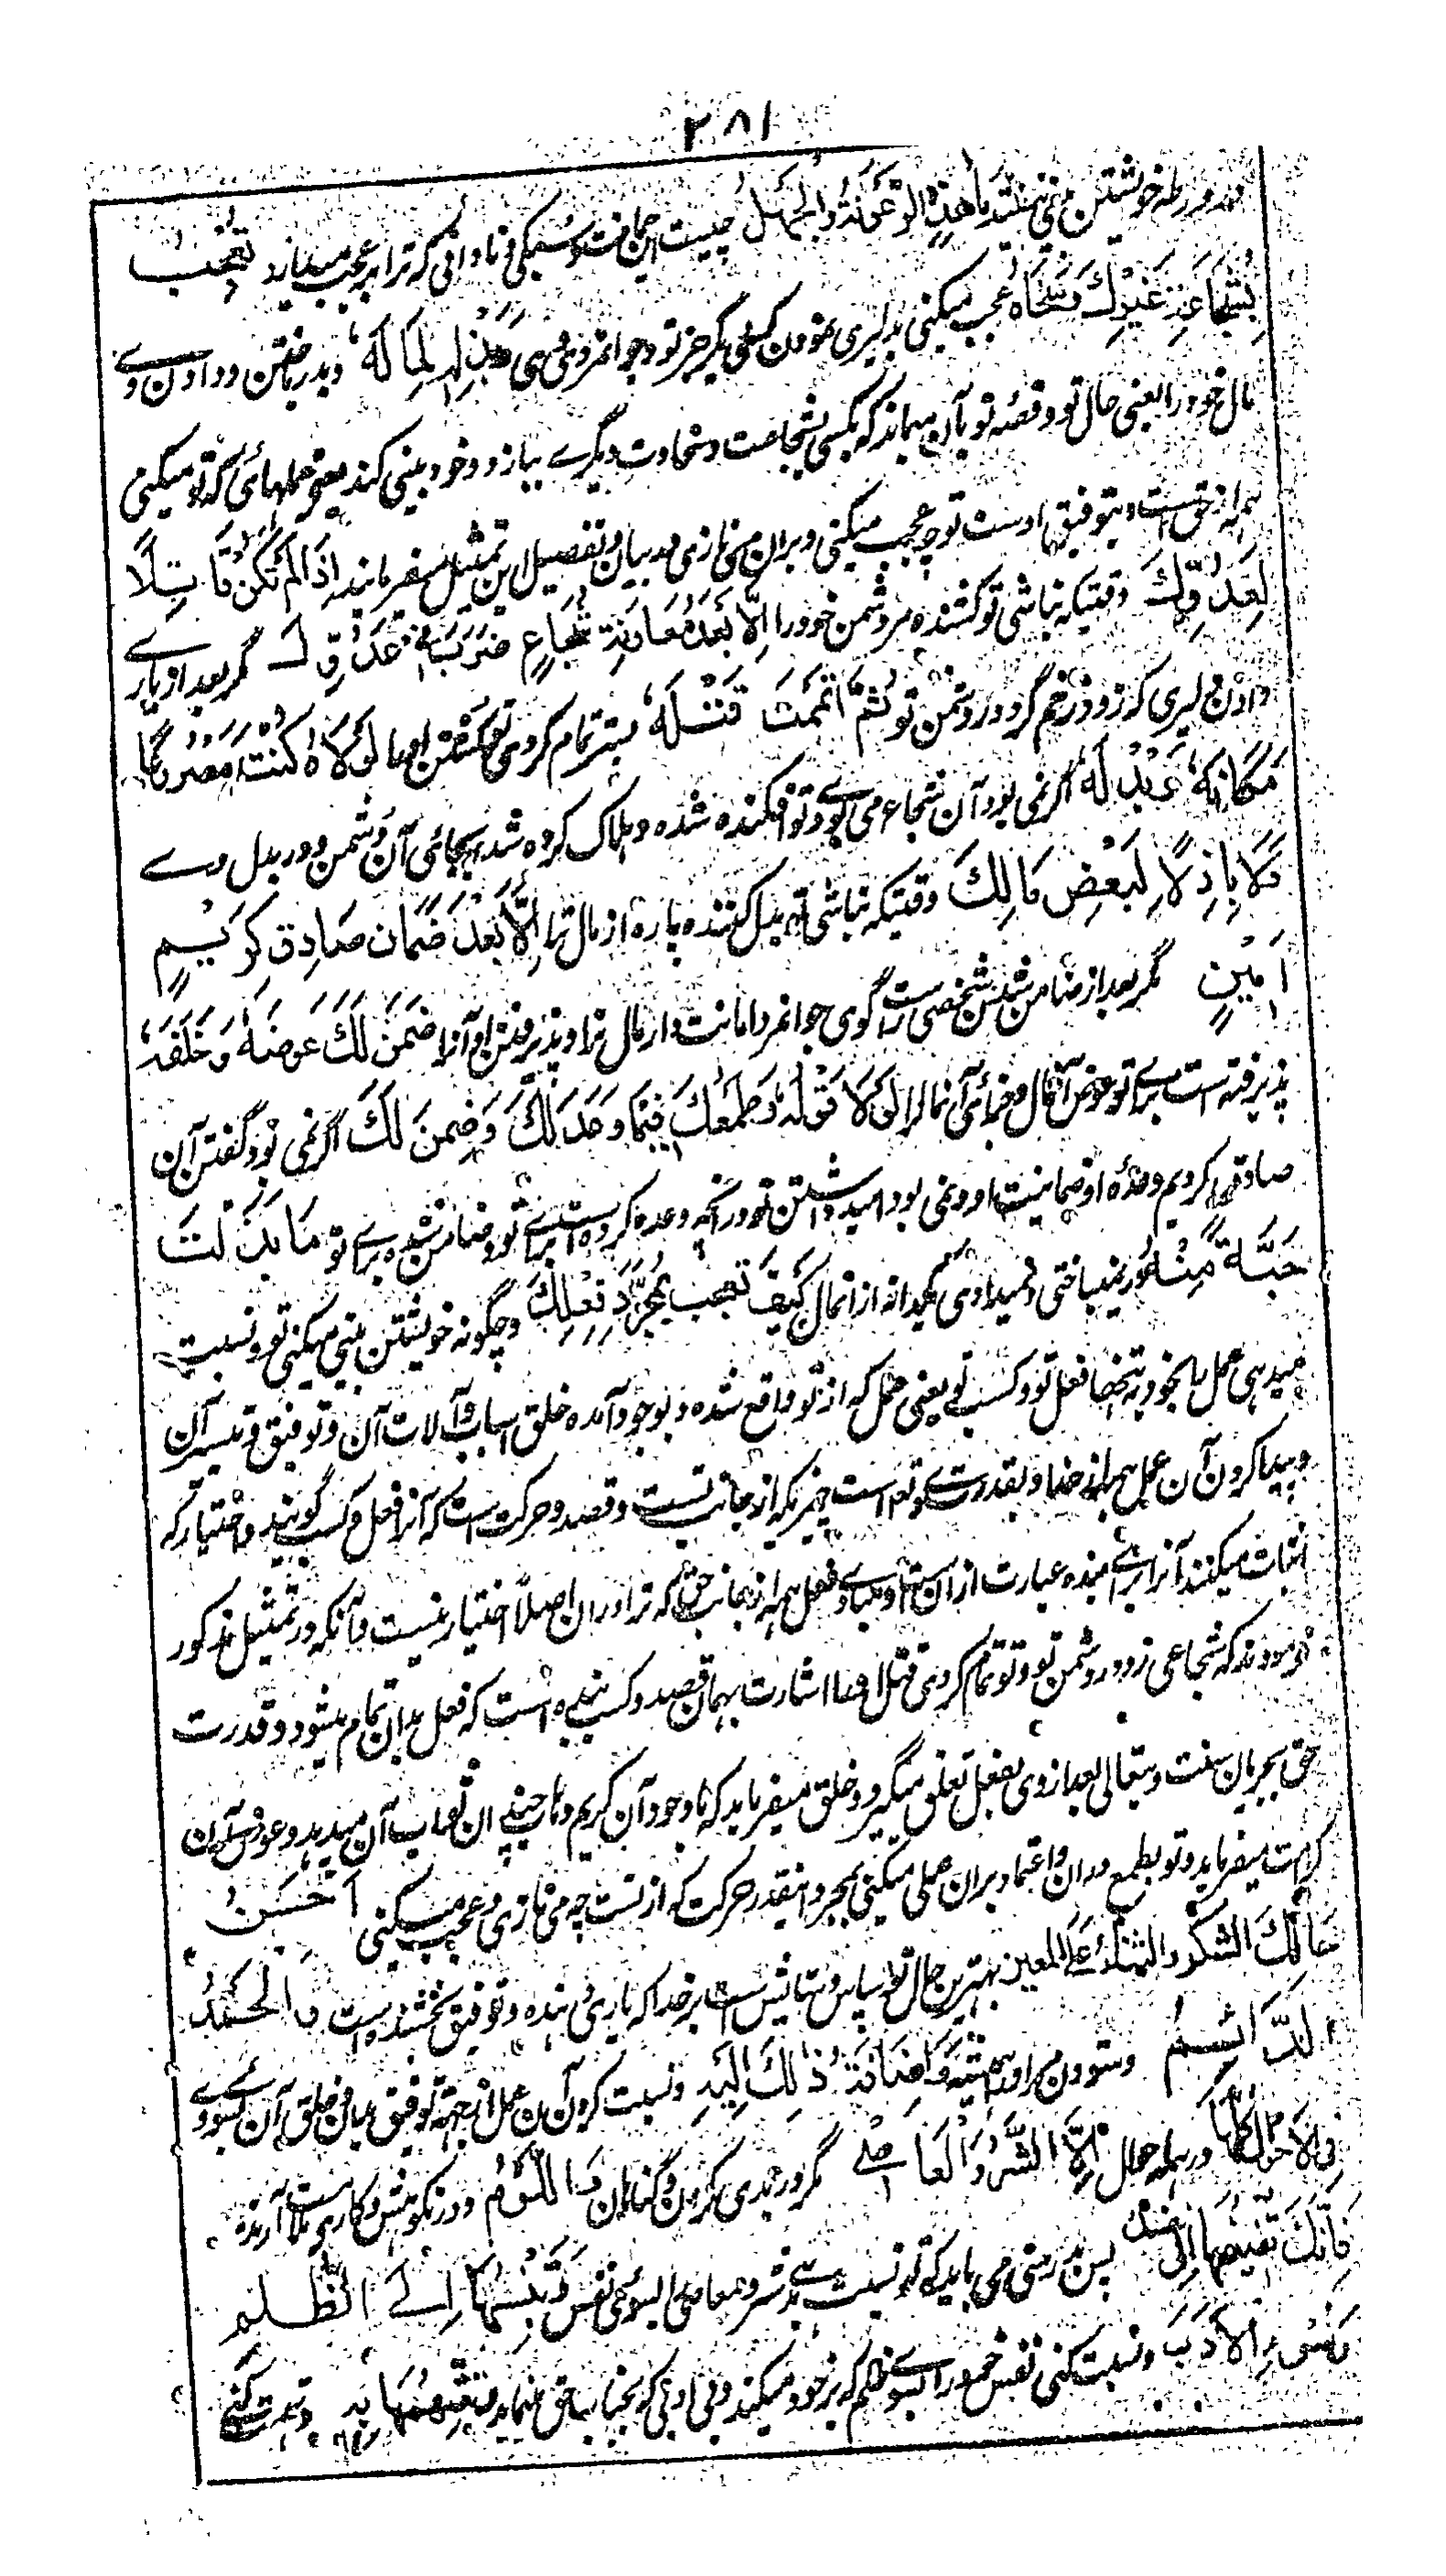 ۲۸۱
در ورطه خویشتن بینی نهفتند ما هذه الرعونة والجهل چیست این حماقت و سبکی و نادانی که ترا بر عجب میدارد تعجب
بشجاعة غیرک وسخاه عجب میکنی بدلیری نمودن کسی دیگر جز تو و جوانمردی وی وبذله لماله و بدرباختن و دادن وے
مال خود را یعنی حال تو و قصه تو بآن میماند که بکسی بشجاعت و سخاوت دیگرے بنازد و خود بینی کند یعنی عملهائی که تو میکنی
همه از حق است و بتوفیق اوست تو چه عجب میکنی و بران می نازی و در بیان و تفصیل این تمثیل میفرمایند اذا لم تکن قاتلا
لعدوک وقتیکه نباشی تو کشنده مر دشمن خود را الا بعد معاونة شجاع ضرب فی عدوک مگر بعد از یارے
دادن دلیری که زد و زخم کرد در دشمن تو ثم اتممت قتله پستر تمام کردی تو کشتن او را لولاه کنت مصروعا
مکانه وبدله اگر نمی بود آن شجاع می بودے تو افکنده شده و هلاک کرده شده بجائی آن دشمن و در بدل وے
ولا باذلا لبعض مالک وقتیکه نباشی تو بذل کننده پاره از مال ترا الا بعد ضمان صادق کریم
امین مگر بعد از ضامن شدن شخصی راست گوی جوانمرد امانت دار مال ترا و پذیرفتن او آنرا ضمن لک عوضه وخلفه
پذیرفته است برای تو عوض آنمال و جزائی آن مال را لولا قوله وطمعک فیما وعد لک وضمن لک اگر نمی بود گفتن آن
صادق کریم وعده او ضمانیت او و نمی بود امید داشتن تو در آنچه وعده کرده است برای تو و ضامن شده برای تو ما بذلت
حبة منه در نمیباختی و نمیدادی یکدانه از انمال کیف تعجب بمجرد فعلک و چگونه خویشتن بینی میکنی تو و نسبت
میدهی عمل را بخود به تنها فعل تو و کسب تو یعنی عمل که از تو واقع شده و بوجود آمده خلق اسباب و آلات آن و توفیق و تیسیر آن
و پیدا کردن آن عمل همه از خدا و بقدرت وی تعالی است چیزیکه از جانب تست و قصد و حرکت است که آنرا فعل و کسب گویند و اختیار که
اثبات میکنند آنرا برای بنده عبارت از آن است و مبادی فعل همه از جانب حق که ترا در ان اصلا اختیار نیست و آنکه در تمثیل مذکور
فرمودند که شجاعی زد در دشمن تو و تو تمام کردی قتل او را اشارت بهمان قصد و کسب بنده است که فعل بدان تمام میشود و قدرت
حق بجریان سنت و سبحانه تعالی بعد از وی بفعل تعلق میگیرد و خلق میفرماید که با وجود آن کریم و ثواب آن میدهد و عوض آن
کرامت میفرماید و تو بطمع دران و اعتماد بران عملی میکنی بمجرد اینقدر حرکت که از تست چه می نازی و عجب میکنی احسن
حالک الشکر والثناء علی المعین بهترین حال تو سپاس و ستایش است بر خدا که یاری دهنده و توفیق بخشنده است والحمد
الدائم و ستودن مر او را همیشه واضافة ذلک الیه و نسبت کردن آن عمل از جهت توفیق و خلق آن بسوی وے
فی الاحوال کلها در همه حوال الا الشر والمعاصی مگر در بدی کردن و گناهان واللوم و در نکوهش و کاری ملامت آرنده
فانک تضیفها الی نفسک پس بدرستی می باید که تو نسبت دهی شر و معاصی را بسوی نفس وتنسبها الی الظلم
وسوء الادب و نسبت کنی نفس خود را بسوی ظلم که بر خود میکند و بی ادبی که بجناب حق مینماید وتتهمها به و تهمت کنی